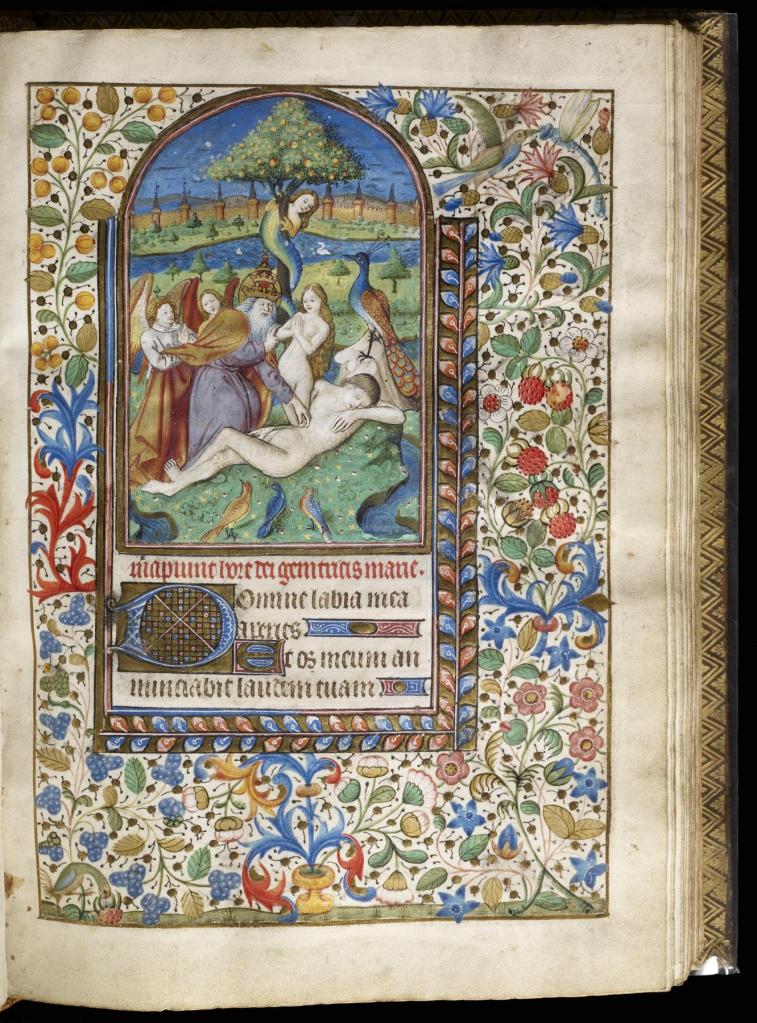 Incipiunt hore dei genitricis marie.
Domine labia mea
aperies
Et os meum an
nunciabit laudem tuam